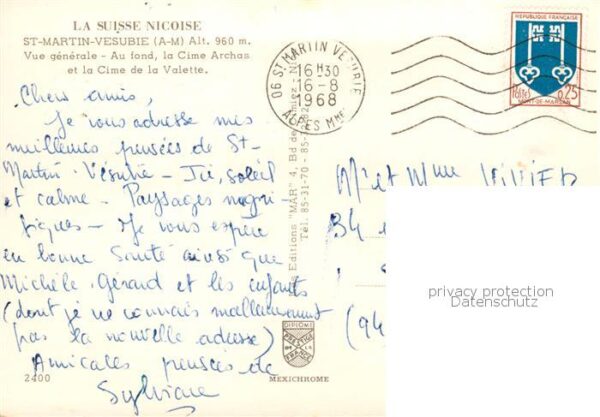 LA SUISSE NICOISE
ST-MARTIN-VESUBIE (A-M) Alt. 960 m.
Vue générale - Au fond, la Cime Archas
et la Cime de la Valette.
Chers amis,
Je vous adresse mes
meilleures pensées de St-
Martin-Vésubie - Ici, soleil
et calme - Paysages magni
fiques - Je vous espère
en bonne santé ainsi que
Michèle, Gérard et les enfants
(dont je ne connais malheureusement
pas la nouvelle adresse)
Amicales pensées de
Sylviane
2400
Les Editions "MAR" 4, Bd de
Tél. 85-31-70 - 85-
DIPLOME
PRESTIGE
DE LA
FRANCE
MEXICHROME
06 ST MARTIN VESUBIE
16 H30
16-8
1968
ALPES MMES
REPUBLIQUE FRANÇAISE
POSTES 0,25
MONT-DE-MARSAN
Mr et Mme VIVIER
34
(94
privacy protection
Datenschutz